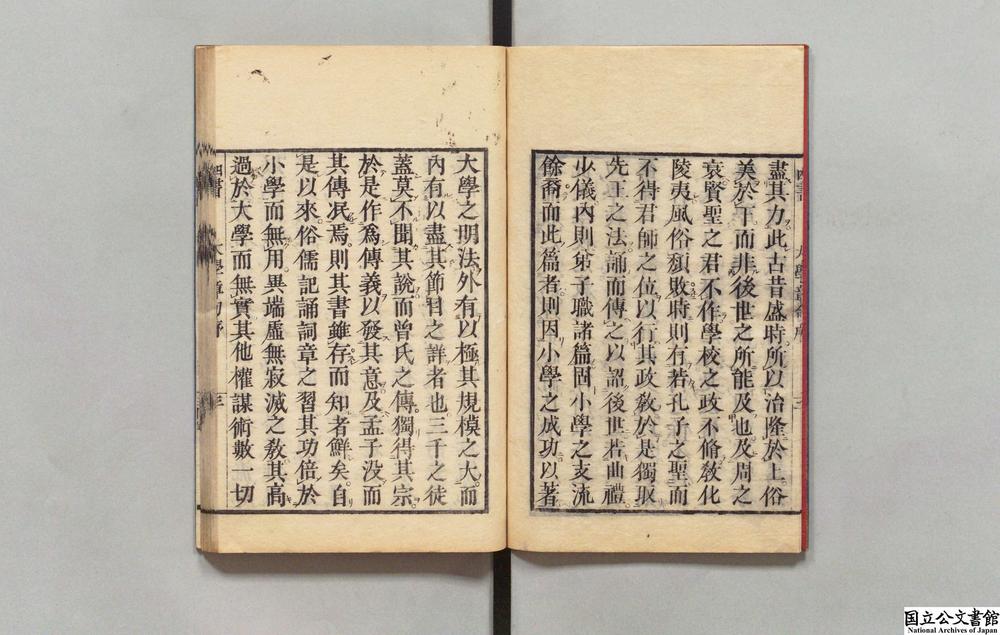 盡其力此古昔盛時所以治隆於上俗
美於下而非後世之所能及也及周之
衰賢聖之君不作學校之政不脩教化
陵夷風俗頹敗時則有若孔子之聖而
不得君師之位以行其政教於是獨取
先王之法誦而傳之以詔後世若曲禮
少儀內則弟子職諸篇固小學之支流
餘裔而此篇者則因小學之成功以著
大學之明法外有以極其規模之大而
內有以盡其節目之詳者也三千之徒
蓋莫不聞其說而曾氏之傳獨得其宗
於是作爲傳義以發其意及孟子没而
其傳泯焉則其書雖存而知者鮮矣自
是以來俗儒記誦詞章之習其功倍於
小學而無用異端虛無寂滅之教其高
過於大學而無實其他權謀術數一切
四書 大學章句序 三
国立公文書館
National Archives of Japan